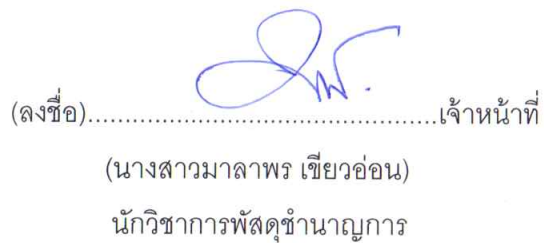 (ลงชื่อ)................................................เจ้าหน้าที่
(นางสาวมาลาพร เขียวอ่อน)
นักวิชาการพัสดุชำนาญการ